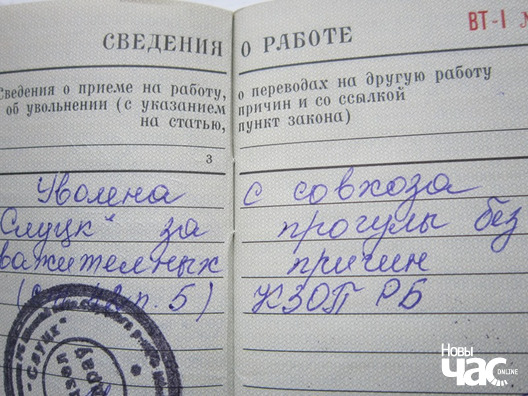 СВЕДЕНИЯ О РАБОТЕ
ВТ-I
Сведения о приеме на работу, о переводах на другую работу
об увольнении (с указанием причин и со ссылкой
на статью, пункт закона)
3
Уволена с совхоза
Слуцк" за прогулы без
важительных причин
п. 5) КЗОП РБ
"Слуцк"
Новы
ЧАС
ONLINE